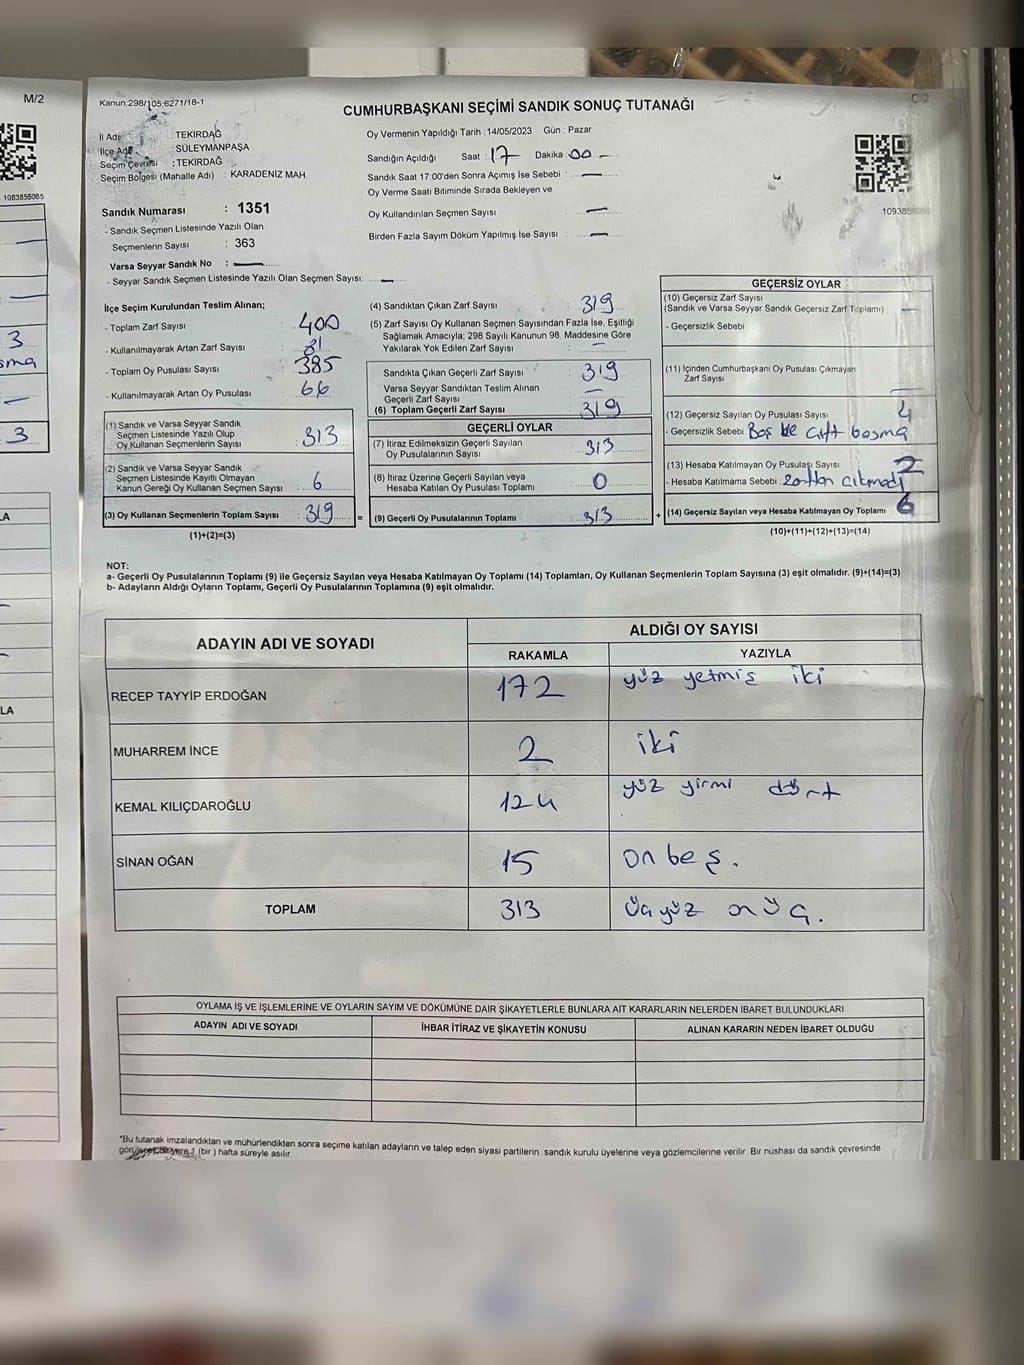 M/2
1083858065
3
3
LA
LA
Kanun 298/105,6271/18-1
C 2
CUMHURBAŞKANI SEÇİMİ SANDIK SONUÇ TUTANAĞI
İl Adı : TEKİRDAĞ
İlçe Adı : SÜLEYMANPAŞA
Seçim Çevresi : TEKİRDAĞ
Seçim Bölgesi (Mahalle Adı) : KARADENİZ MAH.
Oy Vermenin Yapıldığı Tarih : 14/05/2023 Gün : Pazar
Sandığın Açıldığı Saat : 17 Dakika : 00 —
Sandık Saat 17:00'den Sonra Açımış İse Sebebi : —
Oy Verme Saati Bitiminde Sırada Bekleyen ve
Oy Kullandırılan Seçmen Sayısı : —
Birden Fazla Sayım Döküm Yapılmış İse Sayısı : —
Sandık Numarası : 1351
- Sandık Seçmen Listesinde Yazılı Olan
Seçmenlerin Sayısı : 363
Varsa Seyyar Sandık No : —
- Seyyar Sandık Seçmen Listesinde Yazılı Olan Seçmen Sayısı: —
İlçe Seçim Kurulundan Teslim Alınan;
- Toplam Zarf Sayısı : 400
- Kullanılmayarak Artan Zarf Sayısı : 81
- Toplam Oy Pusulası Sayısı : 385
- Kullanılmayarak Artan Oy Pusulası : 66
(1) Sandık ve Varsa Seyyar Sandık
Seçmen Listesinde Yazılı Olup
Oy Kullanan Seçmenlerin Sayısı : 313
(2) Sandık ve Varsa Seyyar Sandık
Seçmen Listesinde Kayıtlı Olmayan
Kanun Gereği Oy Kullanan Seçmen Sayısı : 6
(3) Oy Kullanan Seçmenlerin Toplam Sayısı : 319 =
(1)+(2)=(3)
(4) Sandıktan Çıkan Zarf Sayısı : 319
(5) Zarf Sayısı Oy Kullanan Seçmen Sayısından Fazla İse, Eşitliği
Sağlamak Amacıyla; 298 Sayılı Kanunun 98. Maddesine Göre
Yakılarak Yok Edilen Zarf Sayısı : —
Sandıkta Çıkan Geçerli Zarf Sayısı : 319
Varsa Seyyar Sandıktan Teslim Alınan
Geçerli Zarf Sayısı : —
(6) Toplam Geçerli Zarf Sayısı : 319
GEÇERLİ OYLAR
(7) İtiraz Edilmeksizin Geçerli Sayılan
Oy Pusulalarının Sayısı : 313
(8) İtiraz Üzerine Geçerli Sayılan veya
Hesaba Katılan Oy Pusulası Toplamı : 0
(9) Geçerli Oy Pusulalarının Toplamı : 313 +
GEÇERSİZ OYLAR
(10) Geçersiz Zarf Sayısı
(Sandık ve Varsa Seyyar Sandık Geçersiz Zarf Toplamı) —
- Geçersizlik Sebebi
(11) İçinden Cumhurbaşkanı Oy Pusulası Çıkmayan
Zarf Sayısı —
(12) Geçersiz Sayılan Oy Pusulası Sayısı 4
- Geçersizlik Sebebi Boş ve çift basma
(13) Hesaba Katılmayan Oy Pusulası Sayısı 2
- Hesaba Katılmama Sebebi : zarftan çıkmadı
(14) Geçersiz Sayılan veya Hesaba Katılmayan Oy Toplamı 6
(10)+(11)+(12)+(13)=(14)
NOT:
a- Geçerli Oy Pusulalarının Toplamı (9) ile Geçersiz Sayılan veya Hesaba Katılmayan Oy Toplamı (14) Toplamları, Oy Kullanan Seçmenlerin Toplam Sayısına (3) eşit olmalıdır. (9)+(14)=(3)
b- Adayların Aldığı Oyların Toplamı, Geçerli Oy Pusulalarının Toplamına (9) eşit olmalıdır.
ADAYIN ADI VE SOYADI ALDIĞI OY SAYISI
RAKAMLA YAZIYLA
RECEP TAYYİP ERDOĞAN 172 yüz yetmiş iki
MUHARREM İNCE 2 iki
KEMAL KILIÇDAROĞLU 124 yüz yirmi dört
SİNAN OĞAN 15 on beş.
TOPLAM 313 üçyüz onüç.
OYLAMA İŞ VE İŞLEMLERİNE VE OYLARIN SAYIM VE DÖKÜMÜNE DAİR ŞİKAYETLERLE BUNLARA AİT KARARLARIN NELERDEN İBARET BULUNDUKLARI
ADAYIN ADI VE SOYADI İHBAR İTİRAZ VE ŞİKAYETİN KONUSU ALINAN KARARIN NEDEN İBARET OLDUĞU
*Bu tutanak imzalandıktan ve mühürlendikten sonra seçime katılan adayların ve talep eden siyasi partilerin sandık kurulu üyelerine veya gözlemcilerine verilir. Bir nüshası da sandık çevresinde
1 (bir) hafta süreyle asılır.